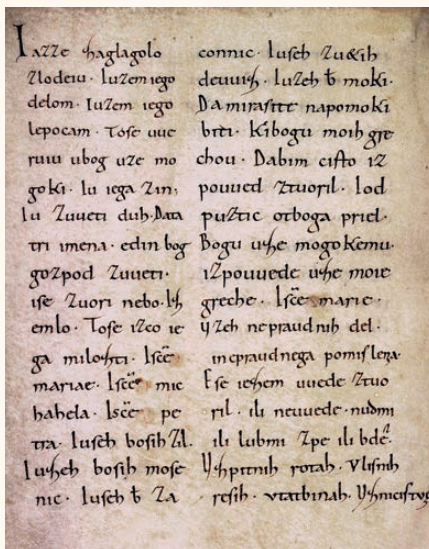 Iazze zaglagolo
zlodeiu· Iuzem iego
delom· Iuzem iego
lepocam· Tose uue
ruiu ubog uze mo
goki· Iu iega zin;
Iu zuueti duh· Data
tri imena· edin bog
gozpod zuueti·
ise zuori nebo· Iz
emlo· Tose izco ie
ga milozti· Isc̄e
mariae· Isc̄e mic
hahela· Isc̄e pe
tra· Iuseh bosih zil·
Iuzeh bosih mose
nic· Iuseh b̄ za
connic· Iuseh zuzih
deuuiz· Iuzeh b̄ moki·
Da mirasite napomoki
biti· Kibogu moih gre
chou· Dabim cisto iz
pouued ztuoril· Iod
puztic otboga priel·
Bogu uze mogokemu·
izpouuede uze moie
greche· Isc̄e marie·
Uzeh nepraudnih del·
inepraudnega pomislena·
Ese iezem uuede ztuo
ril· ili neuuede· nudmi
ili lubmi zpe ili bde·
Uzpitnih rotah· Vlisnih
resih· vtatbinah· Uznicistog